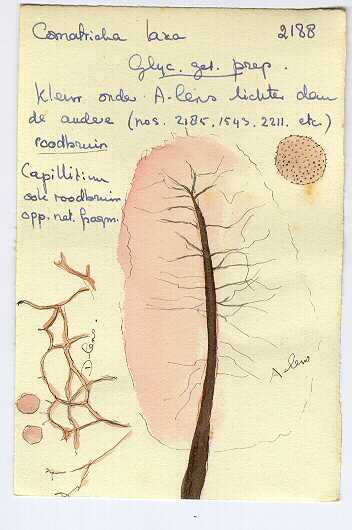 Comatricha laxa 2188
Glyc. gel. prep.
Kleur onder A-lens lichter dan
de andere (nos. 2185. 1543. 2211. etc.)
roodbruin
Capillitium
ook roodbruin
opp. net. fragm.
D-lens.
A-lens